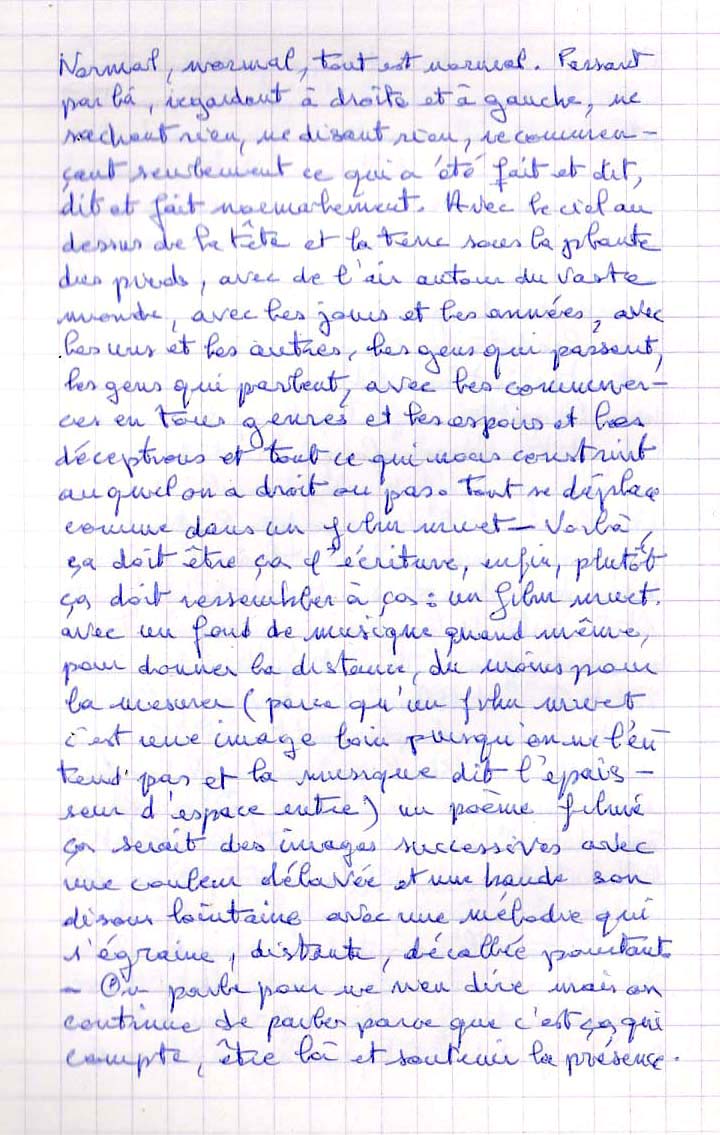 Normal, normal, tout est normal. Passant
par là, regardant à droite et à gauche, ne
sachant rien, ne disant rien, recommen-
çant seulement ce qui a été fait et dit,
dit et fait normalement. Avec le ciel au
dessus de la tête et la terre sous la plante
des pieds, avec de l'air autour du vaste
monde, avec les jours et les années, avec
les uns et les autres, les gens qui passent,
les gens qui parlent, avec les commer-
ces en tous genres et les espoirs et les
déceptions et tout ce qui nous construit
auquel on a droit ou pas. Tout se déplace
comme dans un film muet - Voilà,
ça doit être ça l'écriture, enfin, plutôt
ça doit ressembler à ça : un film muet.
avec un fond de musique quand même,
pour donner la distance, du moins pour
la mesurer (parce qu'un film muet
c'est une image loin puisqu'on ne l'en
tend pas et la musique dit l'épais-
seur d'espace entre) un poème filmé
ça serait des images successives avec
une couleur délavée et une bande son
disons lointaine avec une mélodie qui
s'égraine, distante, décallée pourtant
- On parle pour ne rien dire mais on
continue de parler parce que c'est ça qui
compte, être là et soutenir la présence.